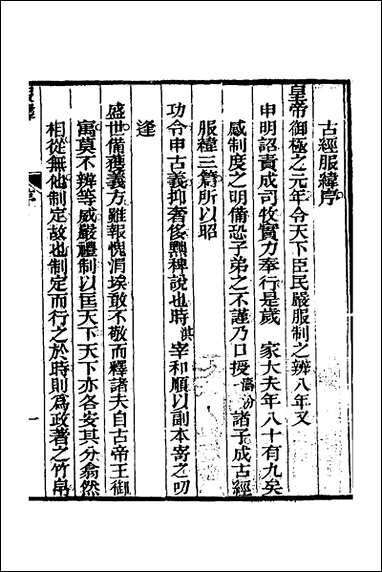 古經服緯序
皇帝御極之元年令天下臣民嚴服制之辨八年又
申明詔責成司牧實力奉行是歲 家大夫年八十有九矣
感制度之明備恐子弟之不謹乃口授 諸子成古經
服緯三篇所以昭
功令申古義抑奢侈黜稗說也時淇宰和順以副本寄之叨
逢
盛世備獲義方雖報愧涓埃敢不敬而釋諸夫自古帝王御
寓莫不辨等威嚴禮制以匡天下天下亦各安其分翕然
相從無他制定故也制定而行之於時則爲政著之竹帛
一